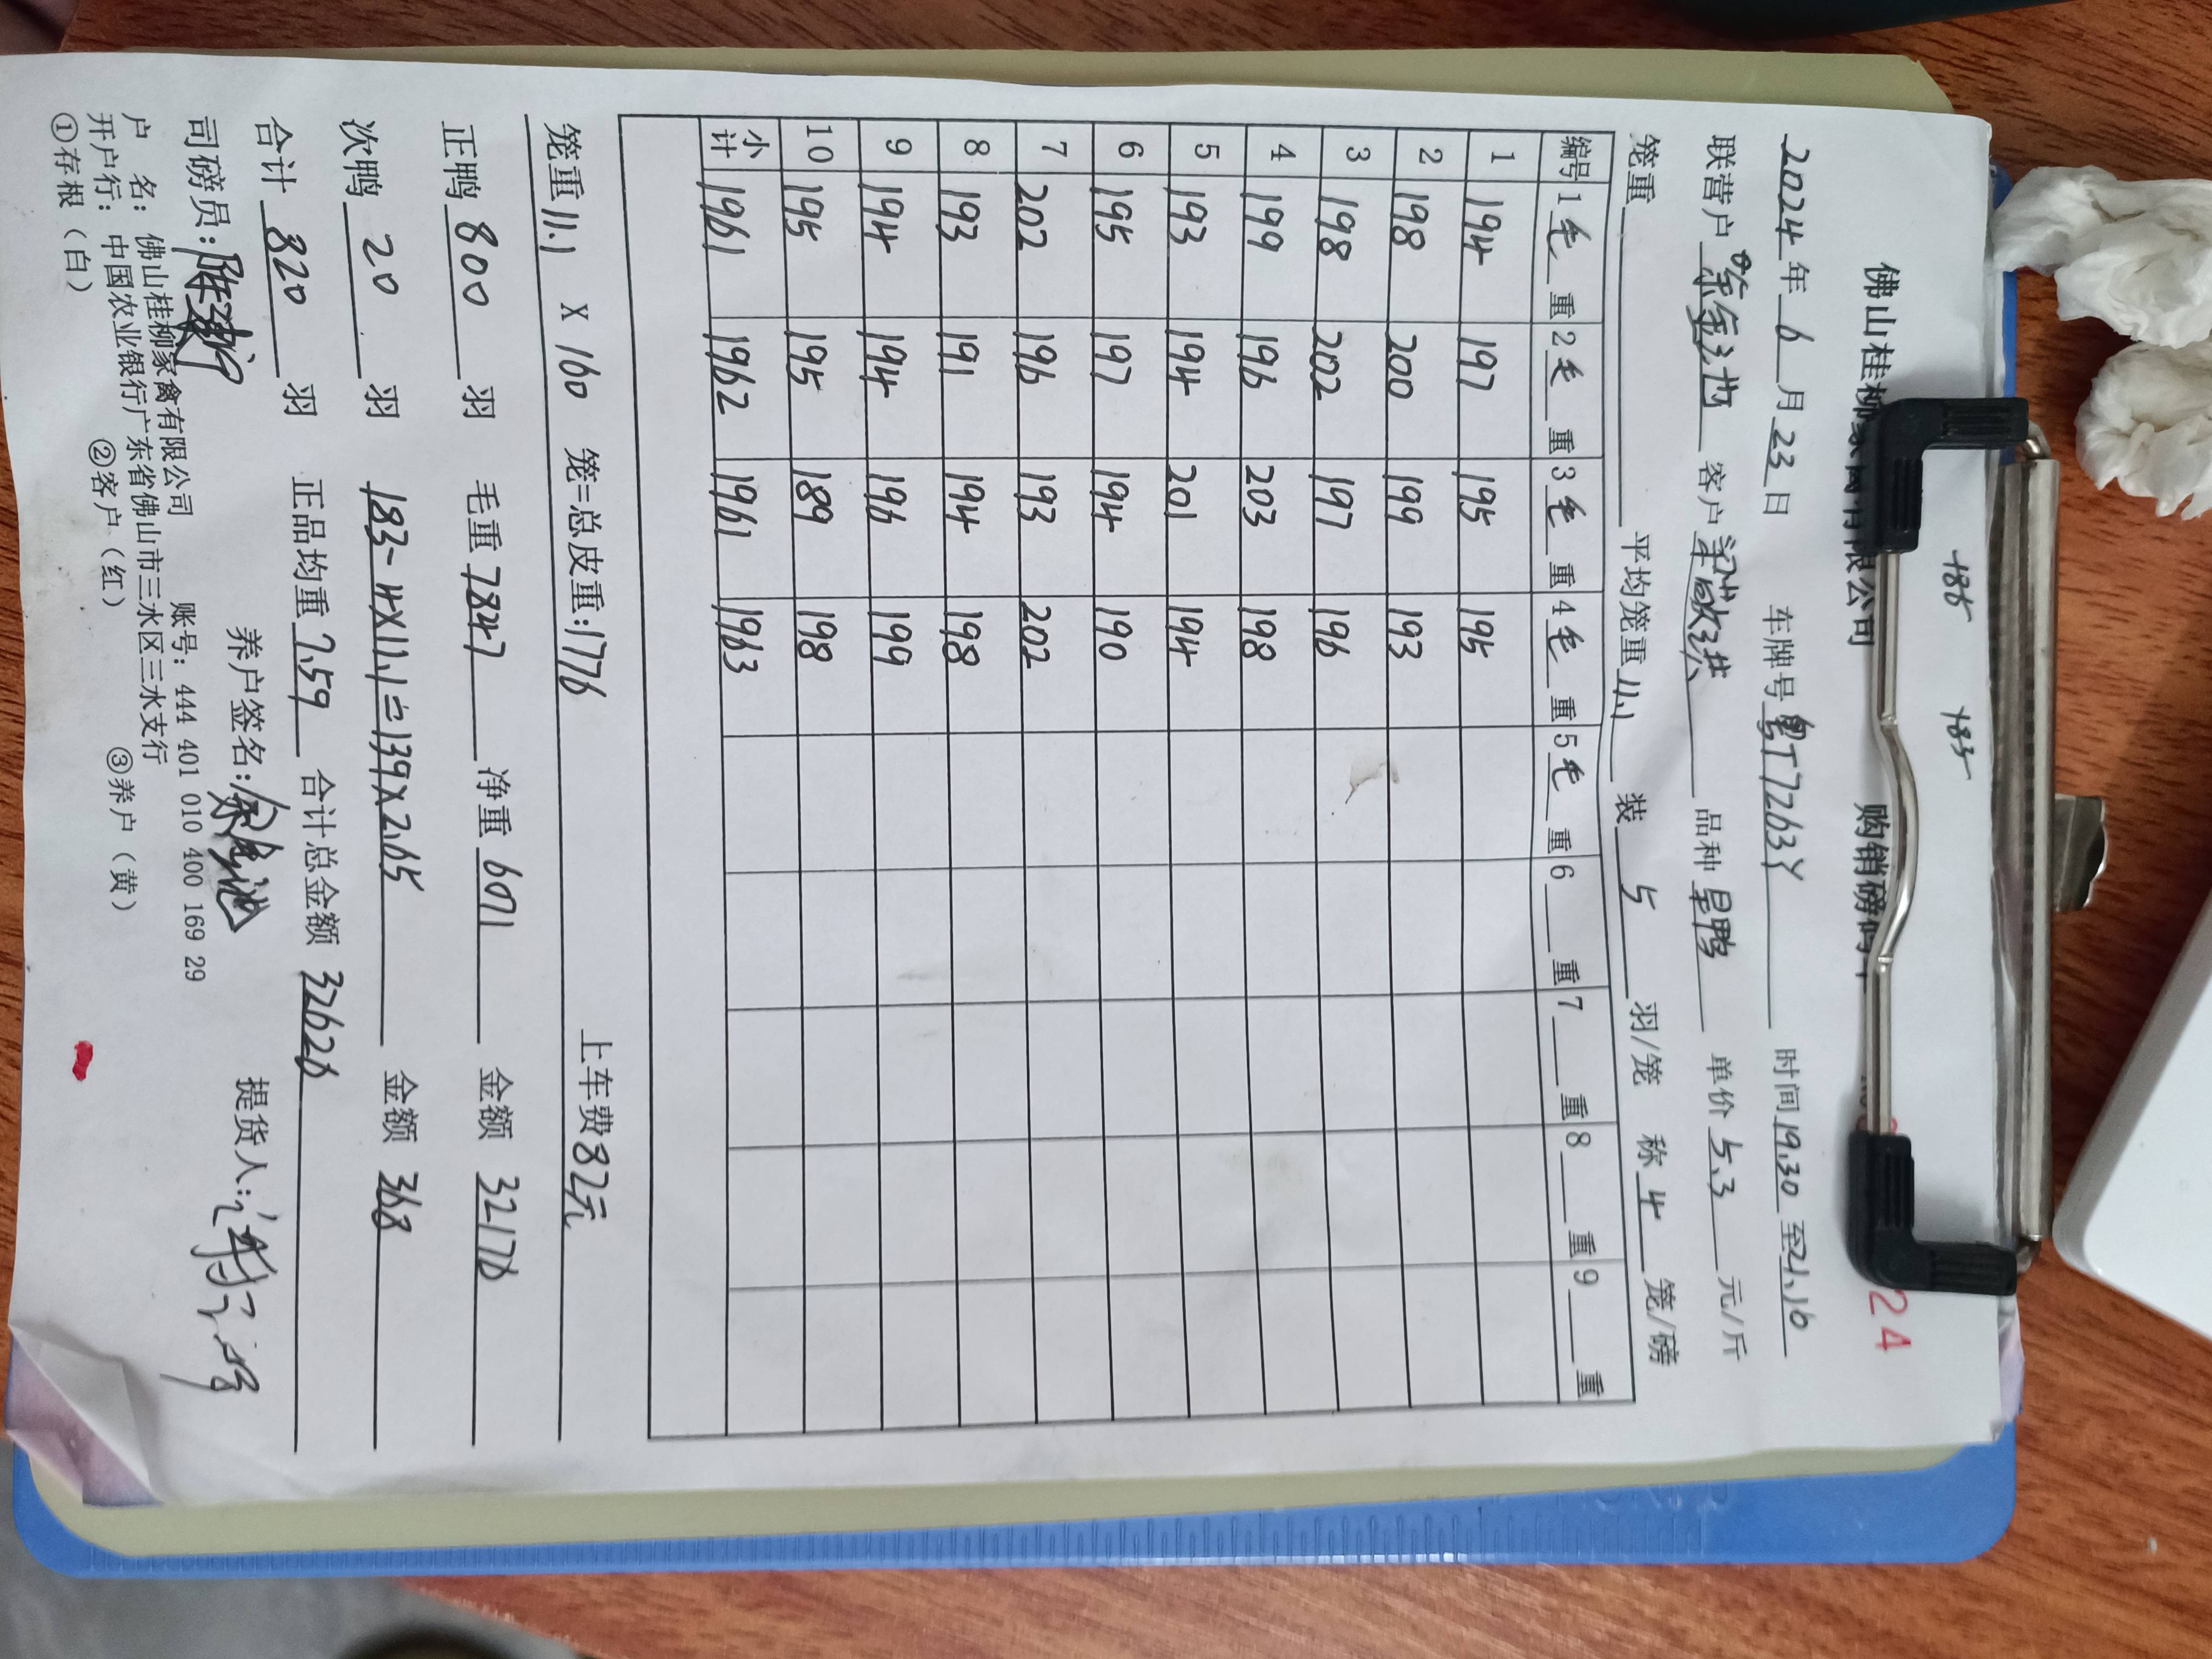 +85 +83
佛山桂柳家禽有限公司 购销磅码单
24
2024年6月23日 车牌号粤T7263Y 时间19.30至21.16
联营户 金池 客户梁 洪 品种 鸭 单价5.3元/斤
笼重 平均笼重11.1 装5羽/笼 称4笼/磅
编号 1毛重 2毛重 3毛重 4毛重 5毛重 6 重 7 重 8 重 9 重
1 194 197 195 195
2 198 200 199 193
3 198 202 197 196
4 199 196 203 198
5 193 194 201 194
6 195 197 194 190
7 202 196 193 202
8 193 191 194 198
9 194 194 196 199
10 195 195 189 198
小计 1961 1962 1961 1963
笼重11.1 X 160 笼=总皮重:1776 上车费82元
正鸭800羽 毛重7847 净重6071 金额32176
次鸭20羽 183-4X11.1=139X2.65 金额368
合计820羽 正品均重7.59 合计总金额32626
司磅员: 养户签名: 提货人:
户 名: 佛山桂柳家禽有限公司 账号: 444 401 010 400 169 29
开户行: 中国农业银行广东省佛山市三水区三水支行
①存根(白) ②客户(红) ③养户(黄)